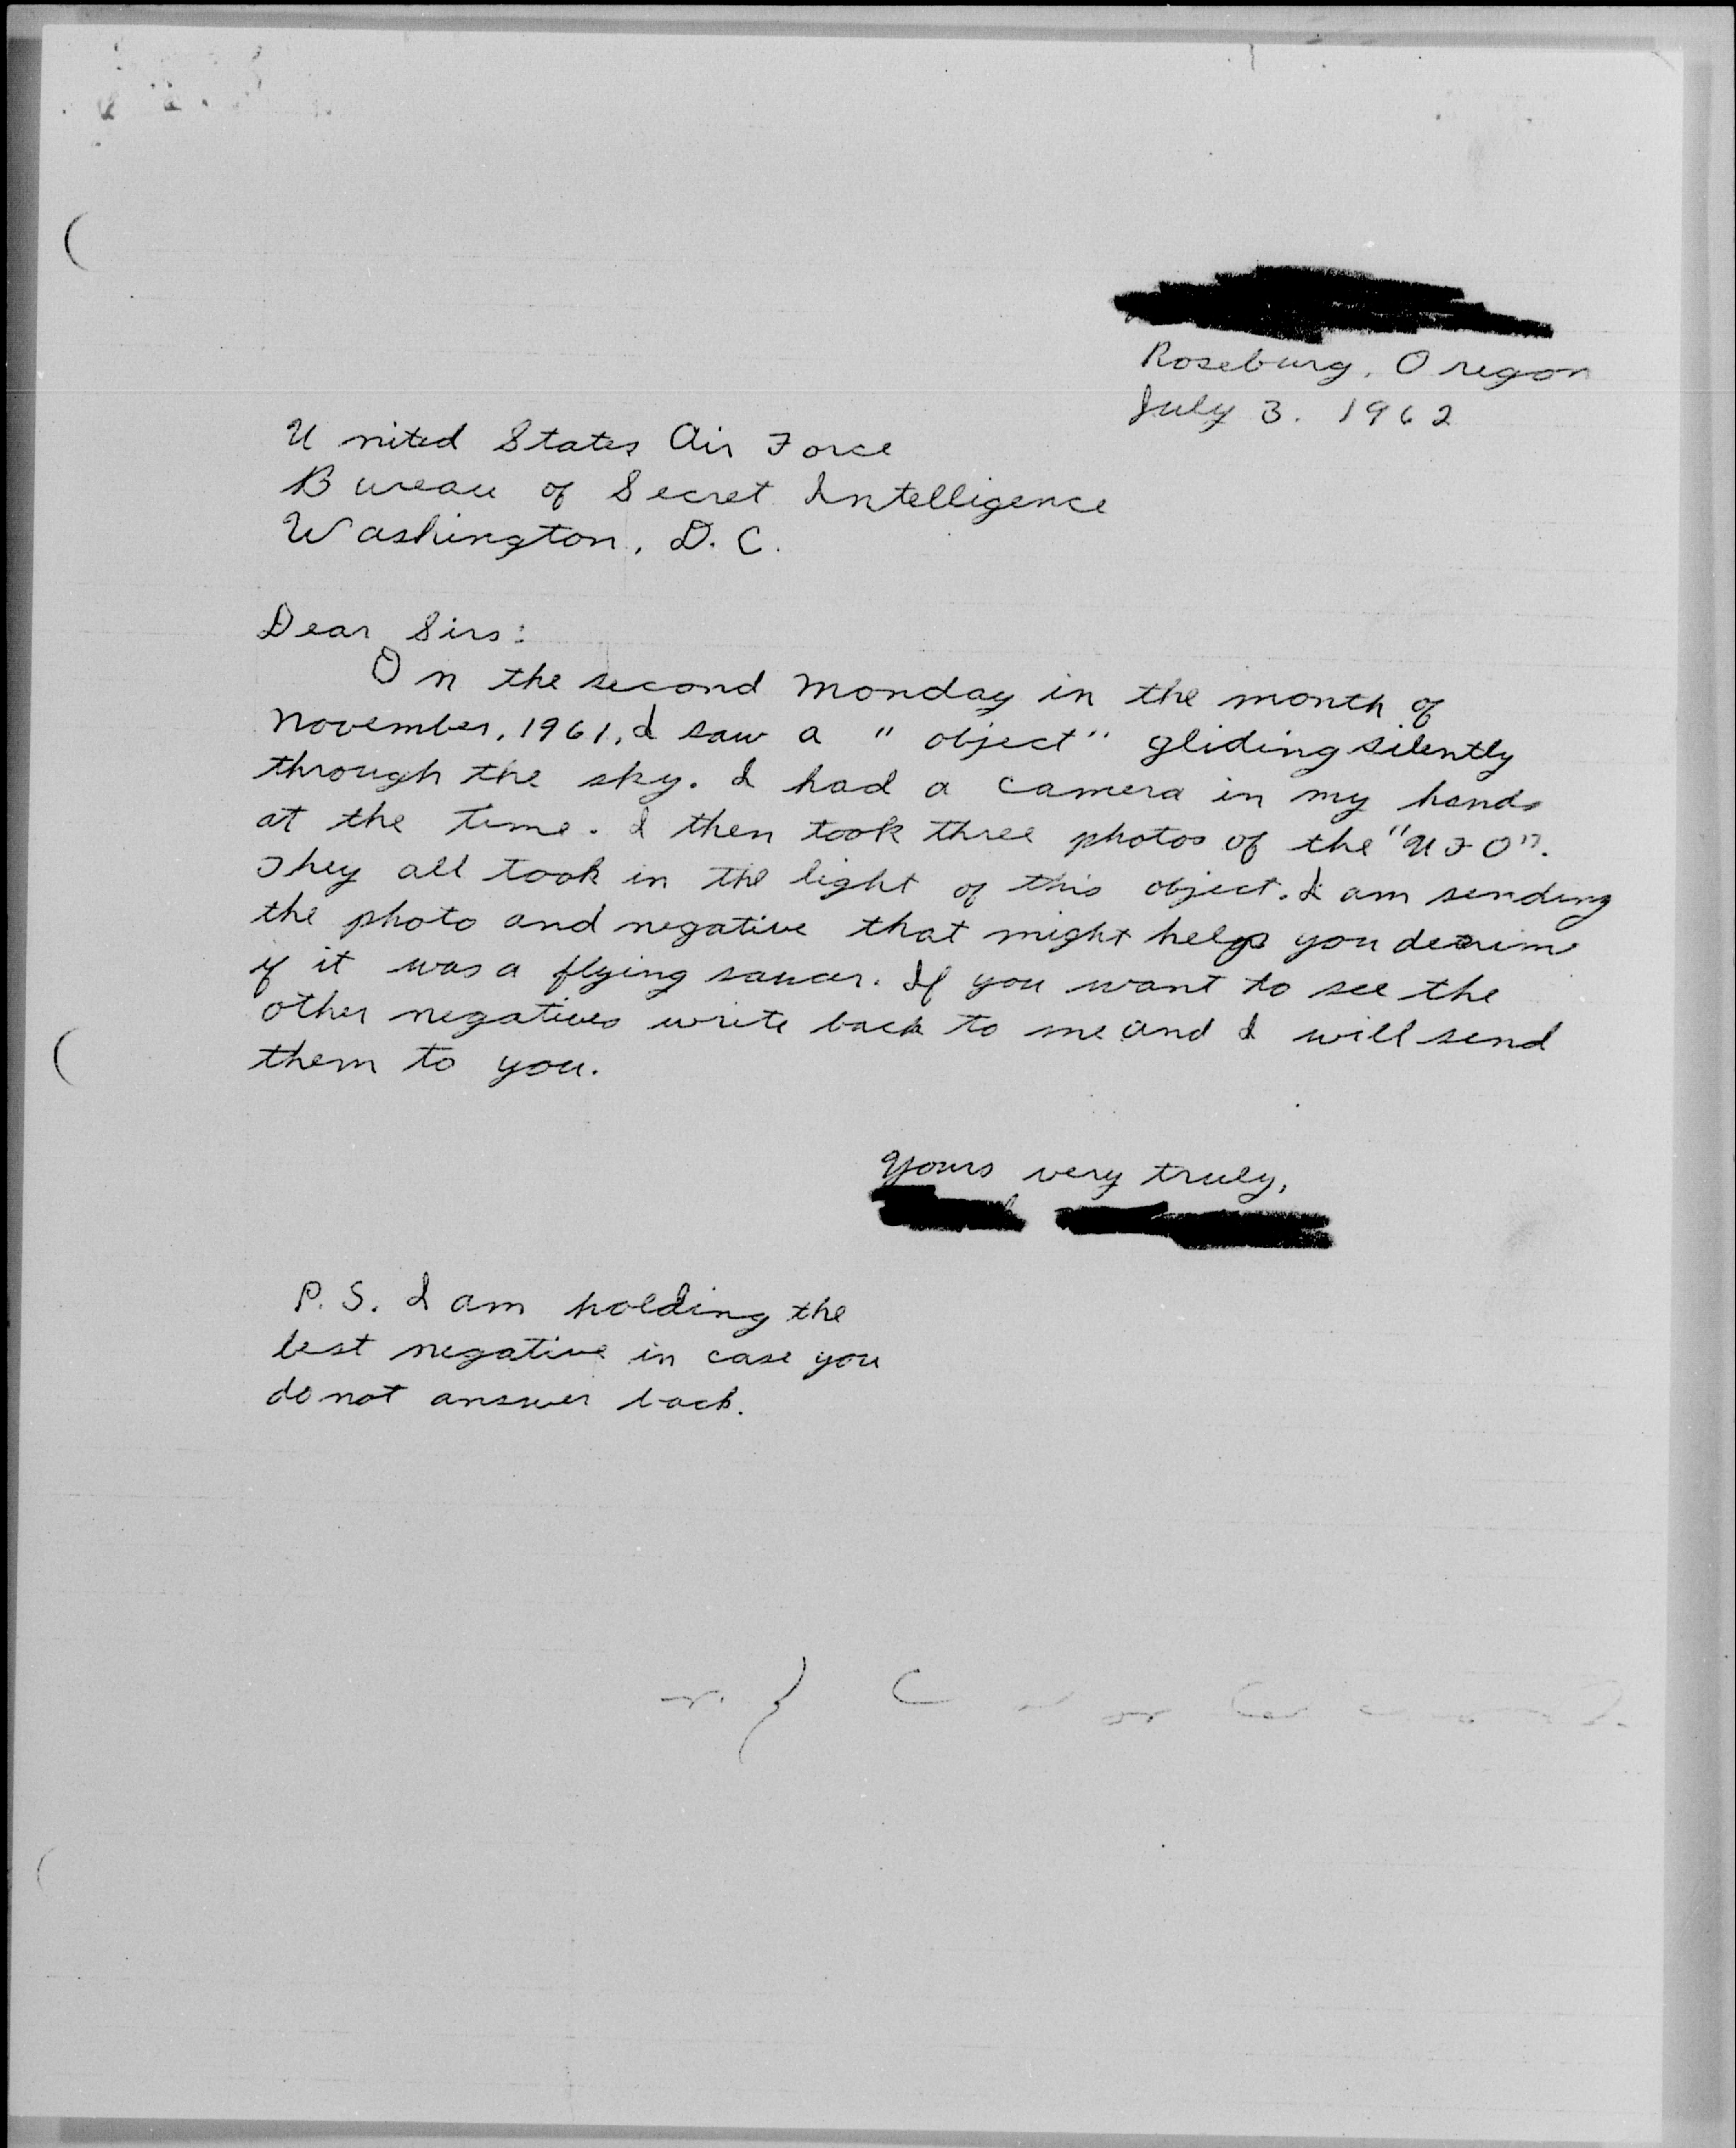 Roseburg, Oregon
July 3. 1962
United States Air Force
Bureau of Secret Intelligence
Washington, D. C.
Dear Sirs:
On the second Monday in the month of
November, 1961, I saw a "object" gliding silently
through the sky. I had a camera in my hands
at the time. I then took three photos of the "UFO".
They all took in the light of this object. I am sending
the photo and negative that might help you
if it was a flying saucer. If you want to see the
other negatives write back to me and I will send
them to you.
Yours very truly,
P.S. I am holding the
best negative in case you
do not answer back.